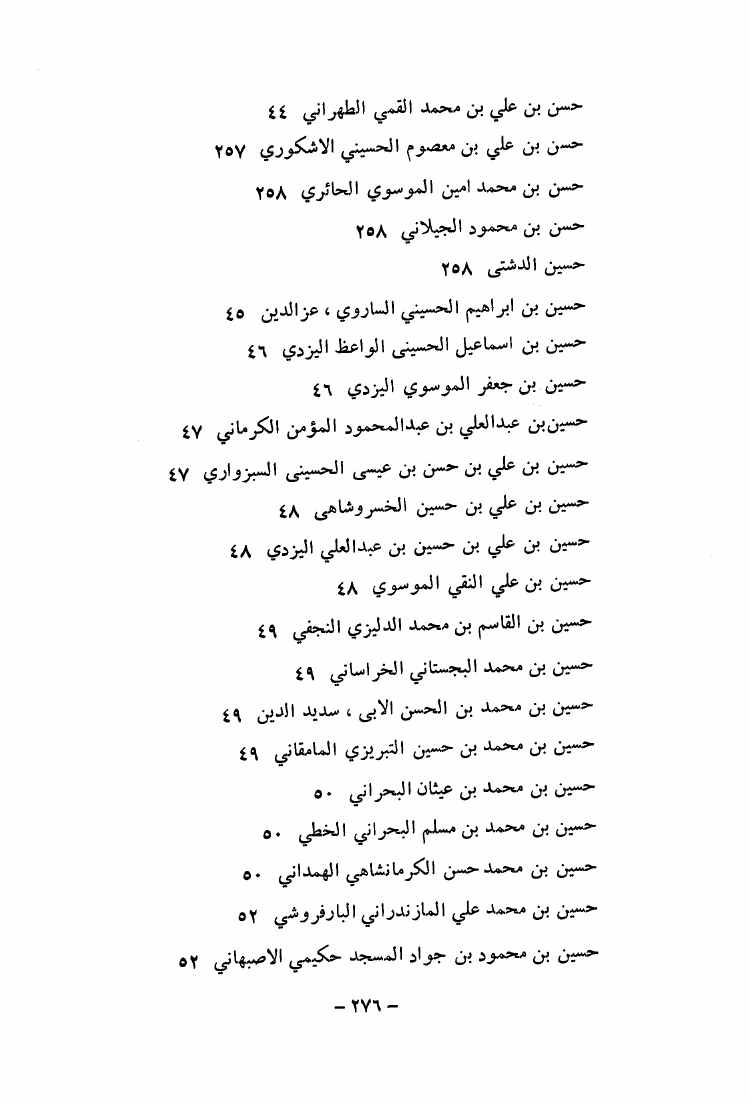 حسن بن علي بن محمد القمي الطهراني ٤٤
حسن بن علي بن معصوم الحسيني الاشكوري ٢٥٧
حسن بن محمد امين الموسوي الحائري ٢٥٨
حسن بن محمود الجيلاني ٢٥٨
حسين الدشتى ٢٥٨
حسين بن ابراهيم الحسيني الساروي ، عزالدين ٤٥
حسين بن اسماعيل الحسينى الواعظ اليزدي ٤٦
حسين بن جعفر الموسوي اليزدي ٤٦
حسين بن عبدالعلي بن عبدالمحمود المؤمن الكرماني ٤٧
حسين بن علي بن حسن بن عيسى الحسينى السبزواري ٤٧
حسين بن علي بن حسين الخسروشاهى ٤٨
حسين بن علي بن حسين بن عبدالعلي اليزدي ٤٨
حسين بن علي النقي الموسوي ٤٨
حسين بن القاسم بن محمد الدليزي النجفي ٤٩
حسين بن محمد البجستاني الخراساني ٤٩
حسين بن محمد بن الحسن الابى ، سديد الدين ٤٩
حسين بن محمد بن حسين التبريزي المامقاني ٤٩
حسين بن محمد بن عيثان البحراني ٥٠
حسين بن محمد بن مسلم البحراني الخطي ٥٠
حسين بن محمد حسن الكرمانشاهي الهمداني ٥٠
حسين بن محمد علي المازندراني البارفروشي ٥٢
حسين بن محمود بن جواد المسجد حكيمي الاصبهاني ٥٢
– ٢٧٦ –